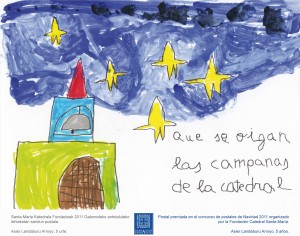 que se oigan
las campanas
de la catedral
Santa Maria Katedrala Fundazioak 2011 Gabonetako antolatutako
lehiaketan saritutako postala.
Asier Landaburu Arroyo. 5 urte.
Postal premiada en el concurso de postales de Navidad 2011 organizado
por la Fundación Catedral Santa María.
Asier Landaburu Arroyo. 5 años.